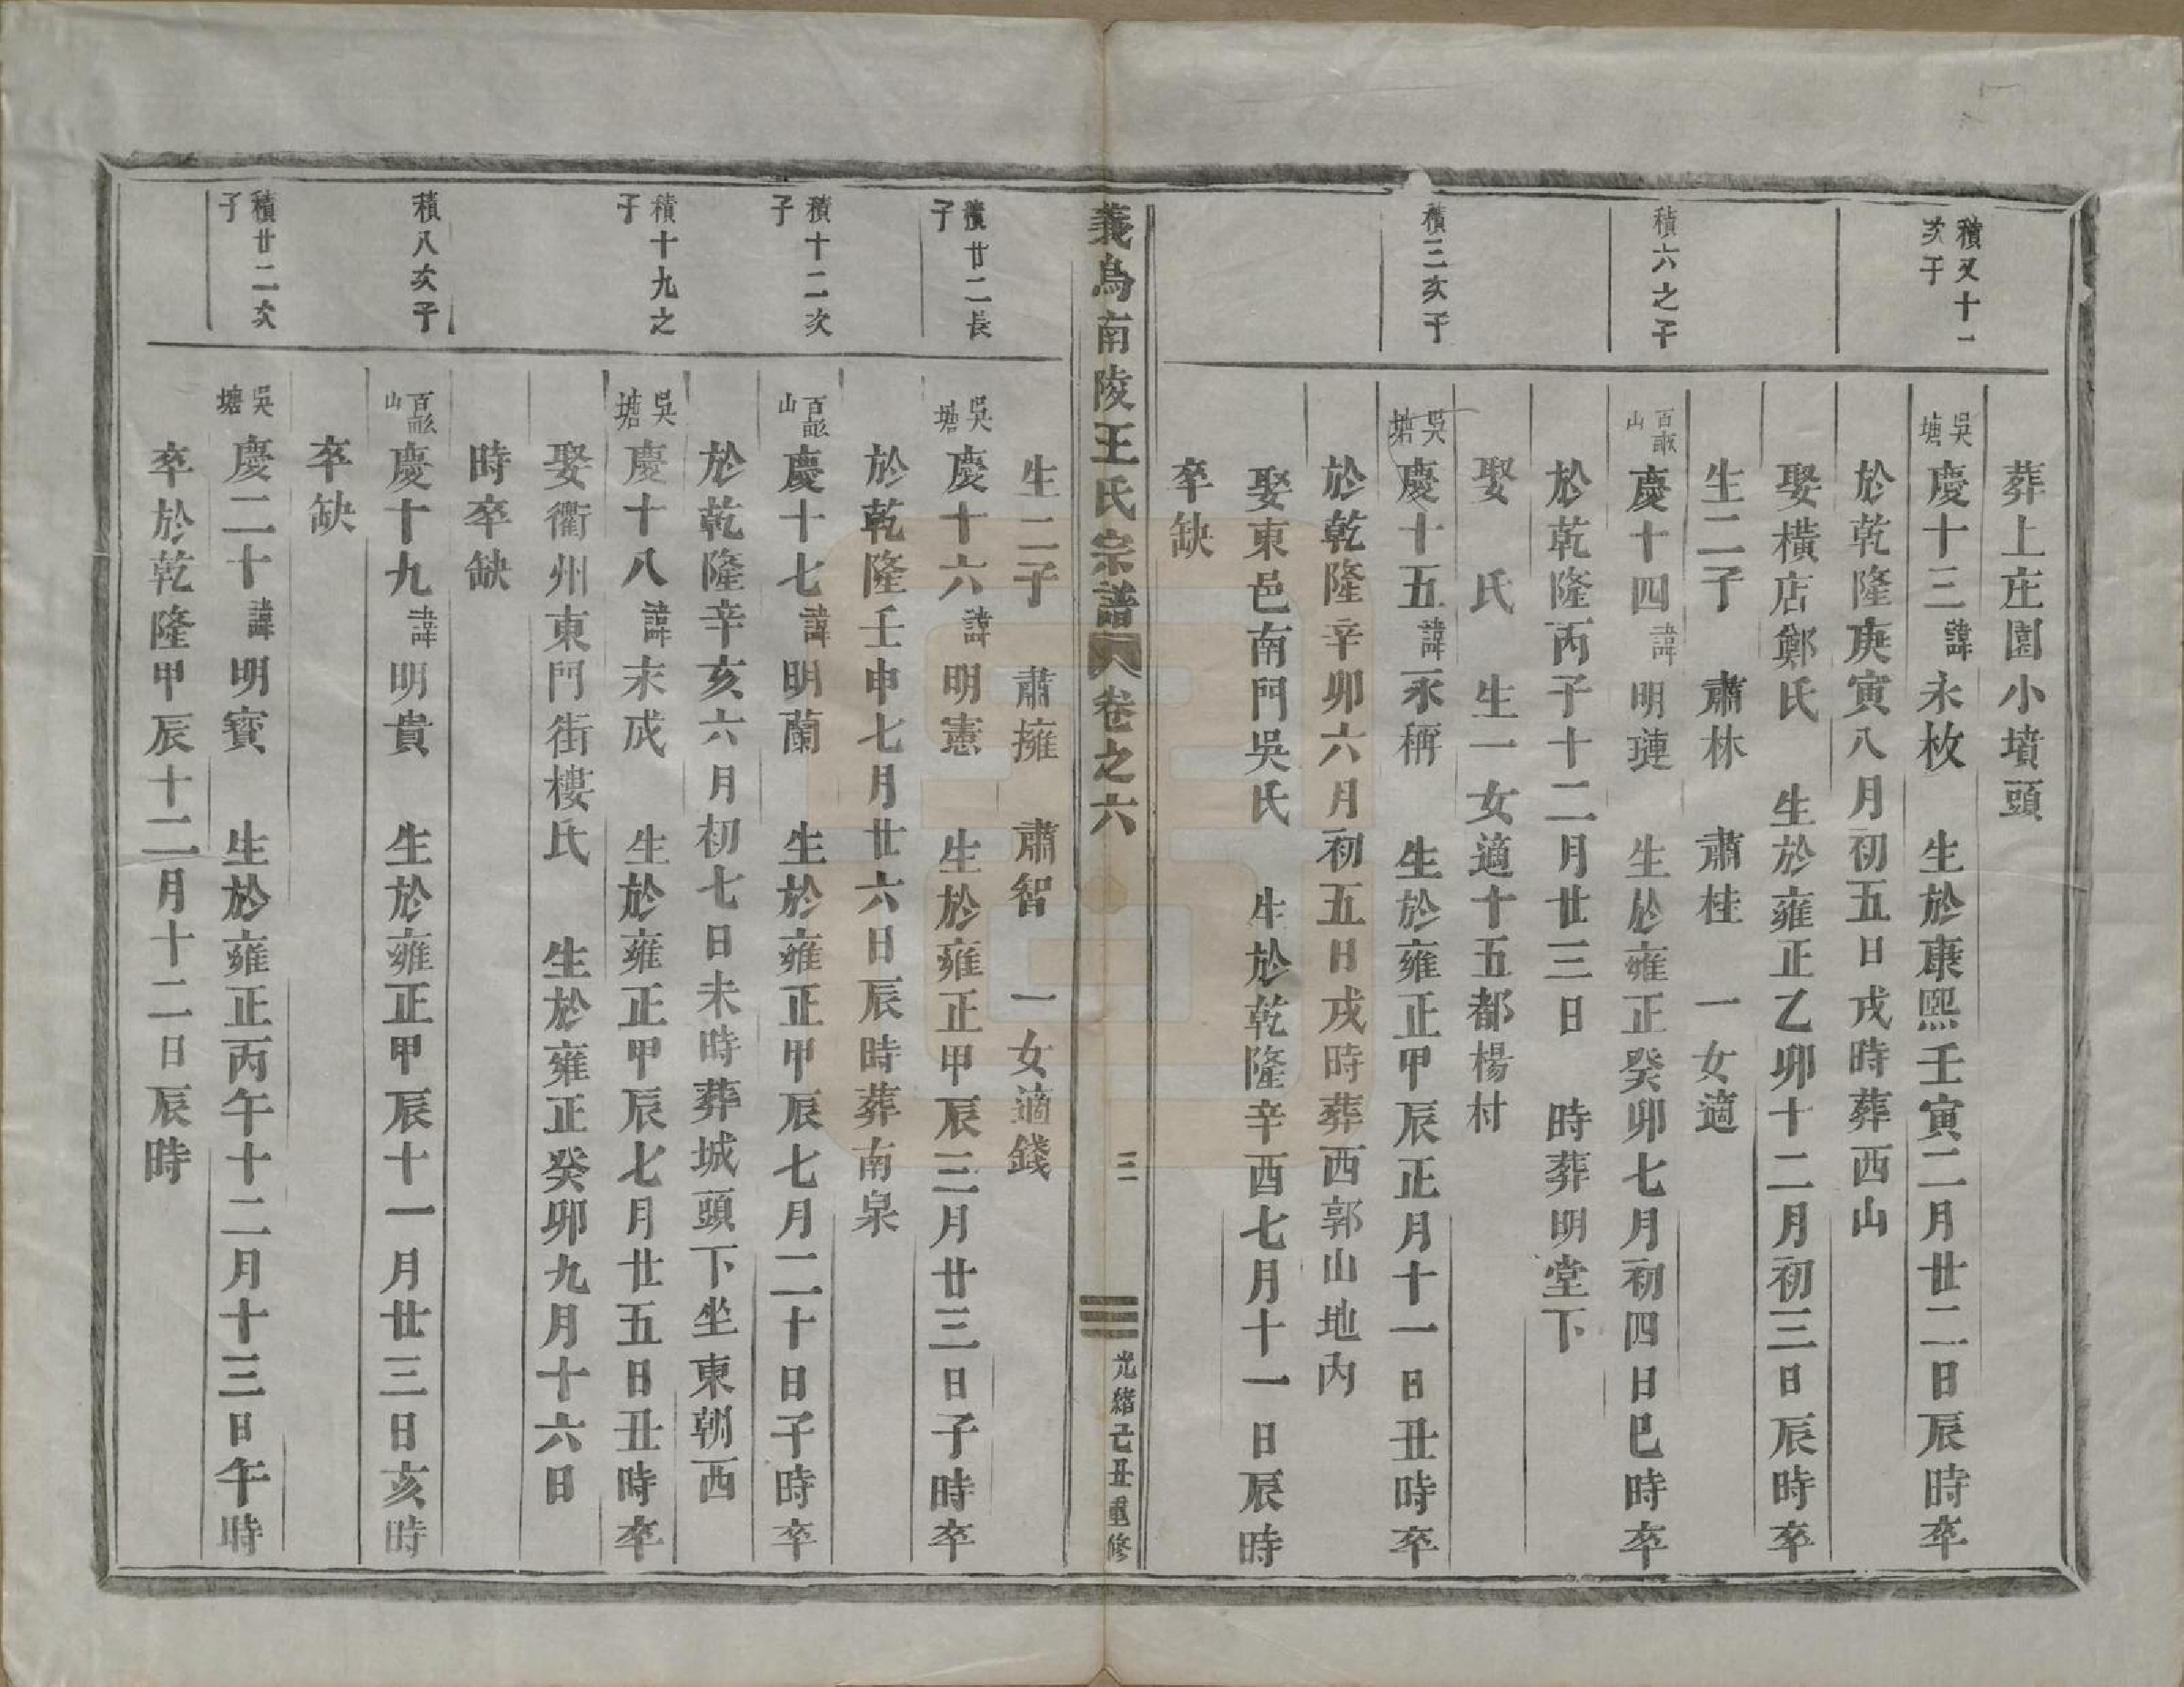 葬上庄園小墳頭
積又十一次子
吳塘慶十三諱永枚　生於康熙壬寅二月廿二日辰時卒
於乾隆庚寅八月初五日戌時葬西山
娶橫店鄭氏　生於雍正乙卯十二月初三日辰時卒
生二子　肅林　肅桂　一女適
積六之子
山慶十四諱明璉　生於雍正癸卯七月初四日巳時卒
於乾隆丙子十二月廿三日　時葬明堂下
娶　氏　生一女適十五都楊村
積三次子
吳塘慶十五諱永稱　生於雍正甲辰正月十一日丑時卒
於乾隆辛卯六月初五日戌時葬西郭山地內
娶東邑南門吳氏　生於乾隆辛酉七月十一日辰時
卒缺
義烏南陵王氏宗譜　卷之六　三　光緒己丑重修
生二子　肅擁　肅智　一女適錢
積廿二長子
吳塘慶十六諱明憲　生於雍正甲辰三月廿三日子時卒
於乾隆壬申七月廿六日辰時葬南泉
積十二次子
山慶十七諱明蘭　生於雍正甲辰七月二十日子時卒
於乾隆辛亥六月初七日未時葬城頭下坐東朝西
積十九之子
吳塘慶十八諱末成　生於雍正甲辰七月廿五日丑時卒
娶衢州東門街樓氏　生於雍正癸卯九月十六日
時卒缺
積八次子
山慶十九諱明貴　生於雍正甲辰十一月廿三日亥時
卒缺
積廿二次子
吳塘慶二十諱明寶　生於雍正丙午十二月十三日午時
卒於乾隆甲辰十二月十二日辰時